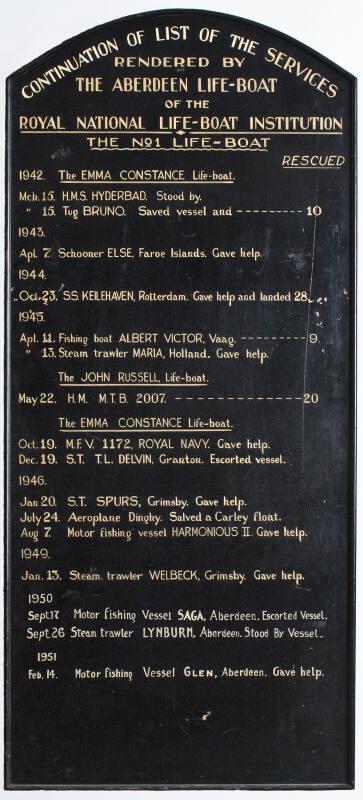 CONTINUATION OF LIST OF THE SERVICES
RENDERED BY
THE ABERDEEN LIFE-BOAT
OF THE
ROYAL NATIONAL LIFE-BOAT INSTITUTION
THE No1 LIFE-BOAT
RESCUED
1942. The EMMA CONSTANCE Life-boat.
Mch. 15. H.M.S. HYDERBAD. Stood by.
" 15. Tug BRUNO. Saved vessel and --------- 10
1943.
Apl. 7. Schooner ELSE, Faroe Islands. Gave help.
1944.
Oct. 23. S.S. KEILEHAVEN, Rotterdam. Gave help and landed 28
1945.
Apl. 11. Fishing boat ALBERT VICTOR, Vaag. --------- 9
" 13. Steam trawler MARIA, Holland. Gave help.
The JOHN RUSSELL, Life-boat.
May 22. H.M. M.T.B. 2007. --------------- 20
The EMMA CONSTANCE Life-boat.
Oct. 19. M.F.V. 1172, ROYAL NAVY. Gave help.
Dec. 19. S.T. T.L. DELVIN, Granton. Escorted vessel.
1946.
Jan 20. S.T. SPURS, Grimsby. Gave help.
July 24. Aeroplane Dinghy. Salved a Carley float.
Aug 7. Motor fishing vessel HARMONIOUS II. Gave help.
1949.
Jan. 13. Steam trawler WELBECK, Grimsby. Gave help.
1950
Sept. 17 Motor fishing Vessel SAGA, Aberdeen. Escorted Vessel.
Sept. 26 Steam trawler LYNBURN, Aberdeen. Stood By Vessel.
1951
Feb. 14. Motor fishing Vessel GLEN, Aberdeen. Gave help.